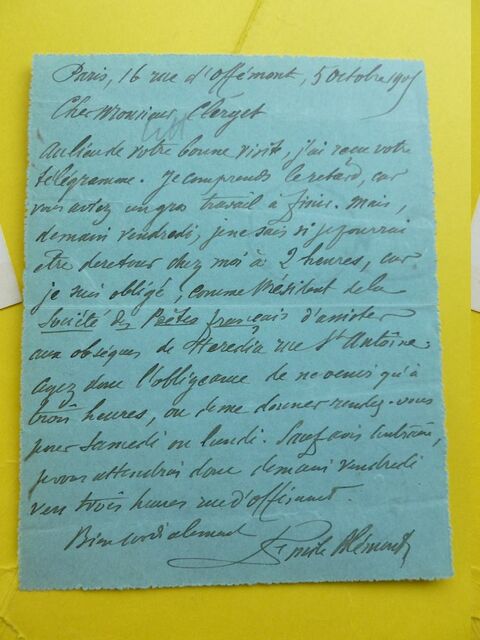 Paris, 16 rue d'Offémont, 5 octobre 1905
Cher Monsieur Clerget
Au lieu de votre bonne visite, j'ai reçu votre
télégramme. Je comprends le retard, car
vous aviez un gros travail à finir. Mais,
demain vendredi, je ne sais si je pourrai
être de retour chez moi à 2 heures, car
je suis obligé, comme Président de la
Société des Poètes français d'assister
aux obsèques de Heredia rue St Antoine.
Ayez donc l'obligeance de ne venir qu'à
trois heures, ou de me donner rendez-vous
pour Samedi ou lundi. Sauf avis contraire,
je vous attendrai donc demain vendredi
vers trois heures rue d'Offémont.
Bien cordialement
Emile Blémont